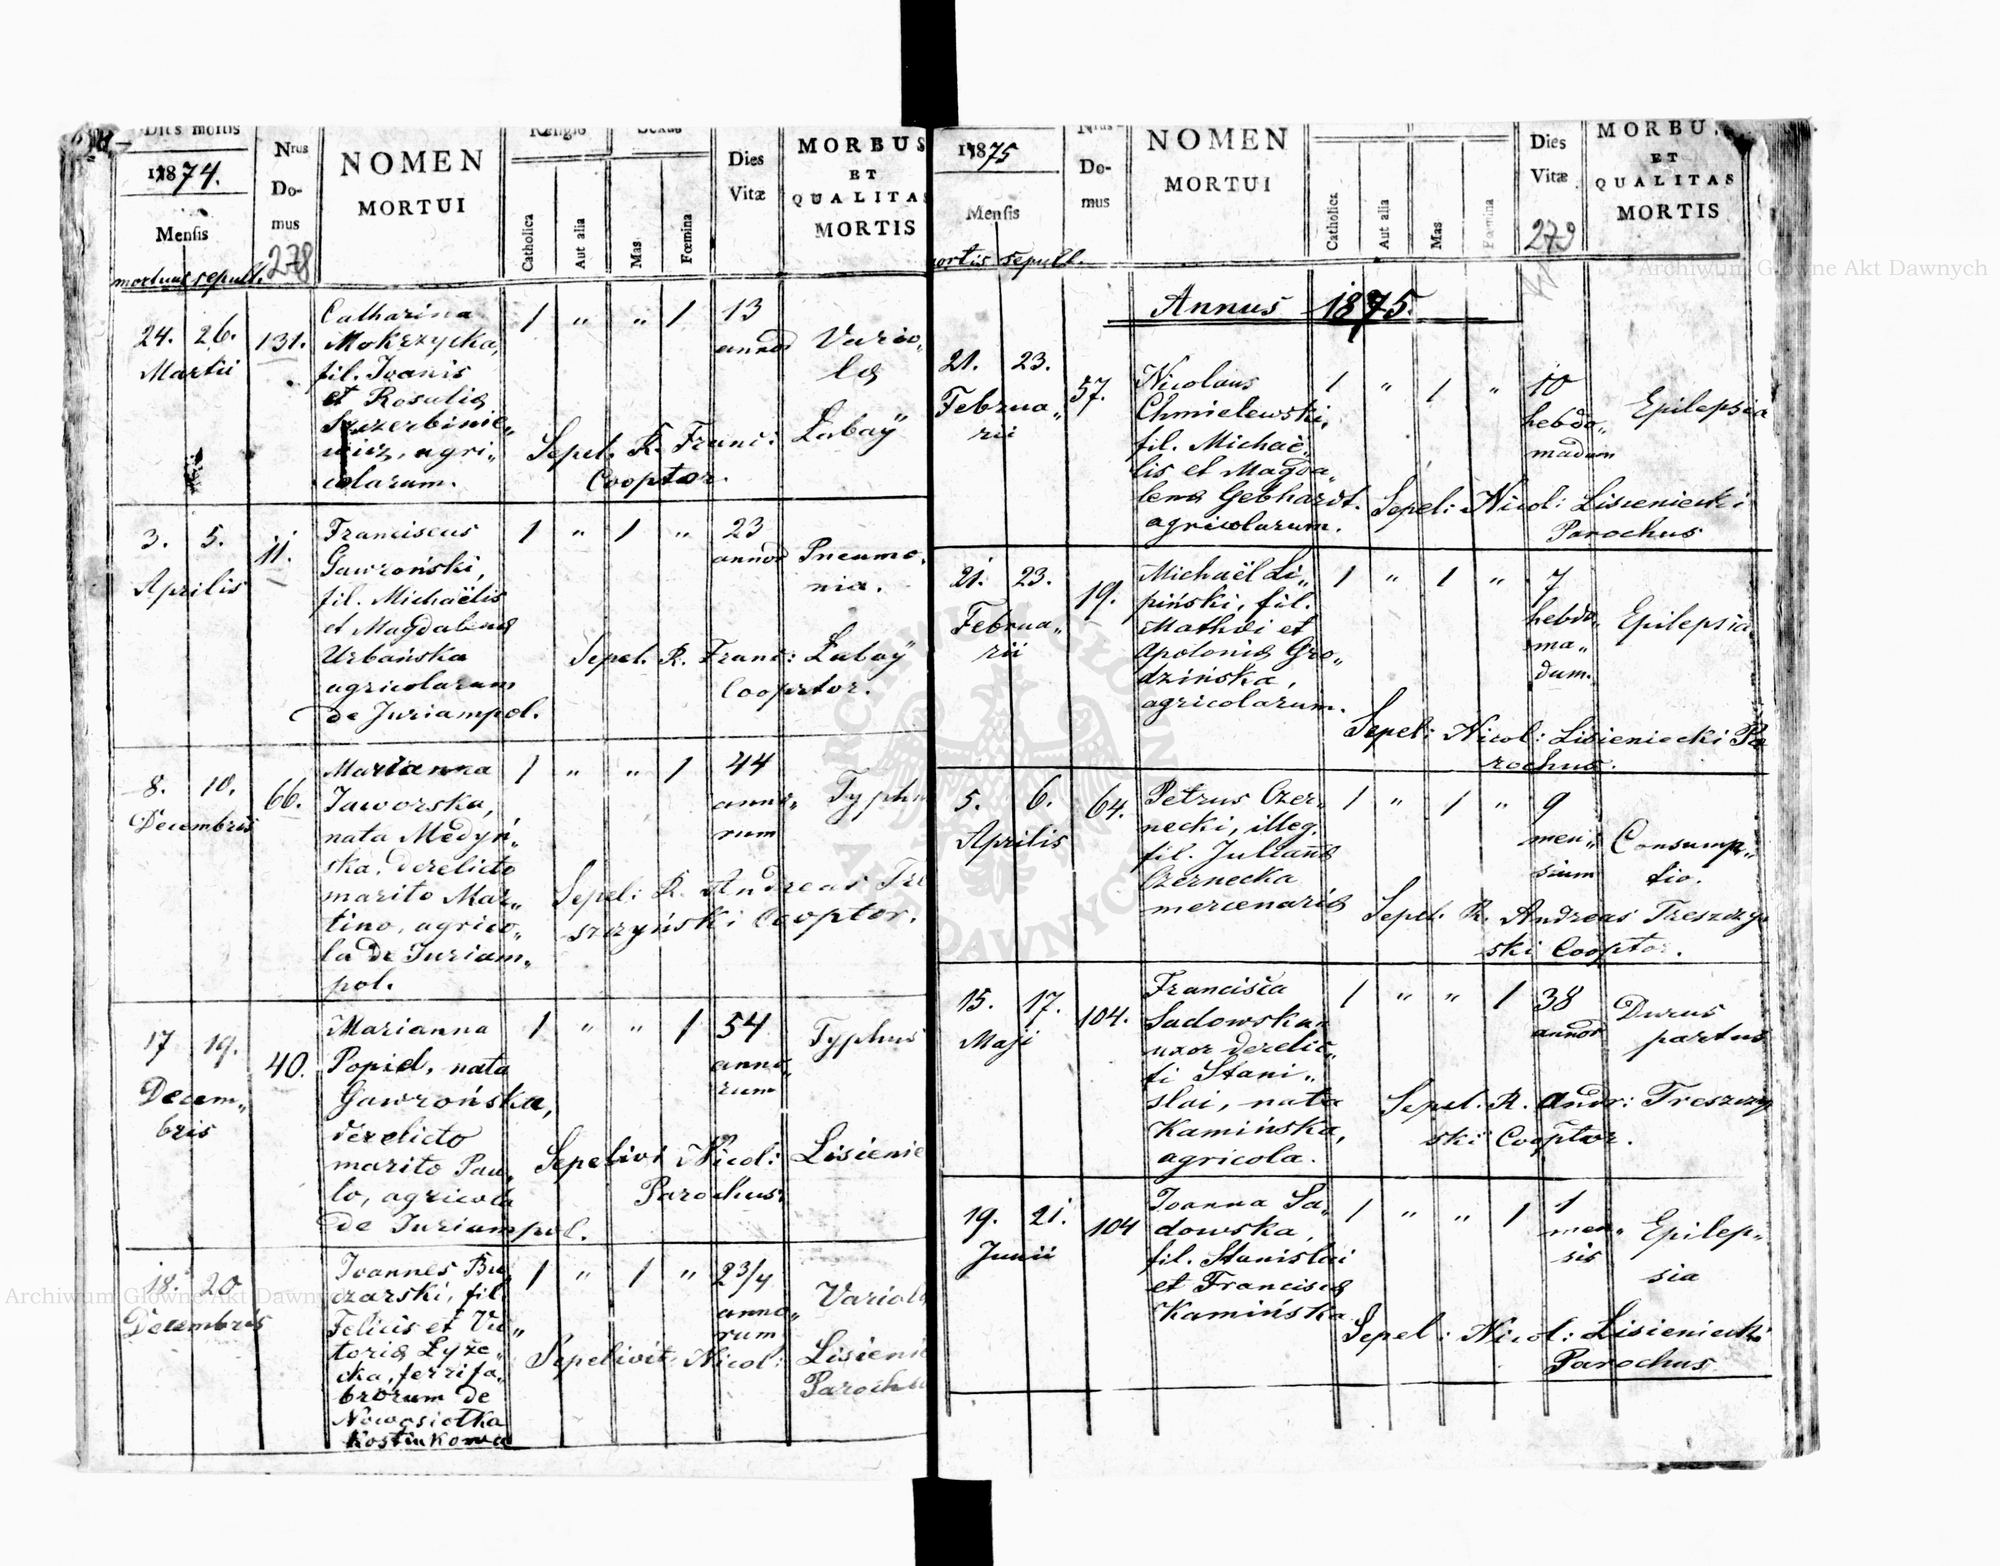 Dies mortis
1874.
Mensis
mortuus sepult.
Nrus
Do-
mus
278
NOMEN
MORTUI
Religio
Sexus
Catholica
Aut alia
Mas
Fœmina
Dies
Vitæ
MORBUS
ET
QUALITAS
MORTIS
24. 26.
Martii
131.
Catharina
Mokrzycka,
fil. Joanis
et Rosalia
Szczerbinie„
wicz, agri„
colarum.
1 „ „ 1
13
annor
Vario„
la
Sepel. R. Franc: Łabaÿ
Cooptor.
3. 5.
Aprilis
11.
Franciscus
Gawroński,
fil. Michaëlis
et Magdalena
Urbańska
agricolarum
de Juriampol.
1 „ 1 „
23
annor
Pneumo„
nia.
Sepel. R. Franc: Łabaÿ
Cooptor.
8. 10.
Decembris
66.
Marianna
Jaworska,
nata Medyń„
ska, derelicto
marito Mar„
tino, agrico„
la de Juriam„
pol.
1 „ „ 1
44
anno„
rum
Typhu
Sepel: R. Andreas Tre
szczyński Cooptor.
17 19.
Decem„
bris
40.
Marianna
Popiel, nata
Gawrońska,
derelicto
marito Pau„
lo, agricola
de Juriampol.
1 „ „ 1
54
anno„
rum
Typhus
Sepelivi Nicol: Lisienie
Parochus.
18. 20
Decembris
Joannes Bu„
czarski, fil.
Felicis et Vic„
toria Łyże„
cka, ferrifa„
brorum de
Nowosiołka
Kostiukowa
1 „ 1 „
2 3/4
anno„
rum
Variola
Sepelivit Nicol: Lisienie
Parochu
1875
Mensis
mortis sepult.
Nrus
Do-
mus
NOMEN
MORTUI
Catholica
Aut alia
Mas
Fœmina
Dies
Vitæ
279
MORBU
ET
QUALITAS
MORTIS
Annus 1875.
21. 23.
Februa„
rii
57.
Nicolaus
Chmielewski,
fil. Michaë„
lis et Magda„
lena Gebhardt.
agricolarum.
1 „ 1 „
10
hebdo„
madum
Epilepsia
Sepel: Nicol: Lisieniecki
Parochus
21. 23.
Februa„
rii
19.
Michaël Li„
piński, fil.
Mathei et
Apolonia Gro„
dzińska,
agricolarum.
1 „ 1 „
7
hebdo„
ma„
dum.
Epilepsia
Sepel: Nicol: Lisieniecki Pa
rochus.
5. 6.
Aprilis
64.
Petrus Czer„
necki, illeg.
fil. Julianna
Czernecka
mercenaria
1 „ 1 „
9
men„
sium
Consump„
tio.
Sepel. R. Andreas Treszczy
ski Cooptor.
15. 17.
Maji
104.
Francisca
Sadowska„
uxor derelic„
ti Stani„
slai, nata
Kamińska,
agricola.
1 „ „ 1
38
annor
Durus
partus
Sepel. R. Andr: Treszczy
ski Cooptor.
19. 21.
Junii
104
Joanna Sa„
dowska,
fil. Stanislai
et Francisca
Kamińska
1 „ „ 1
1
men„
sis
Epilep„
sia
Sepel: Nicol: Lisieniecki
Parochus
Archiwum Główne Akt Dawnych
Archiwum Główne Akt Dawnych
ARCHIWUM GŁÓWNE AKT DAWNYCH